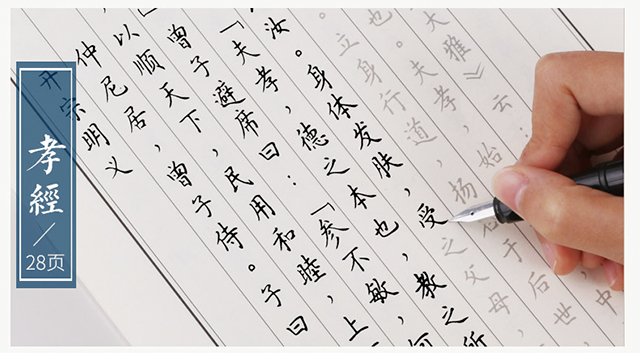 孝經
28页
开宗明义
仲尼居，曾子侍。子曰
以顺天下，民用和睦，上
曾子避席曰：「参不敏，何
「夫孝，德之本也，教之所
汝。身体发肤，受之父母
立身行道，扬名于后世
也。夫孝，始
中
大雅》云：